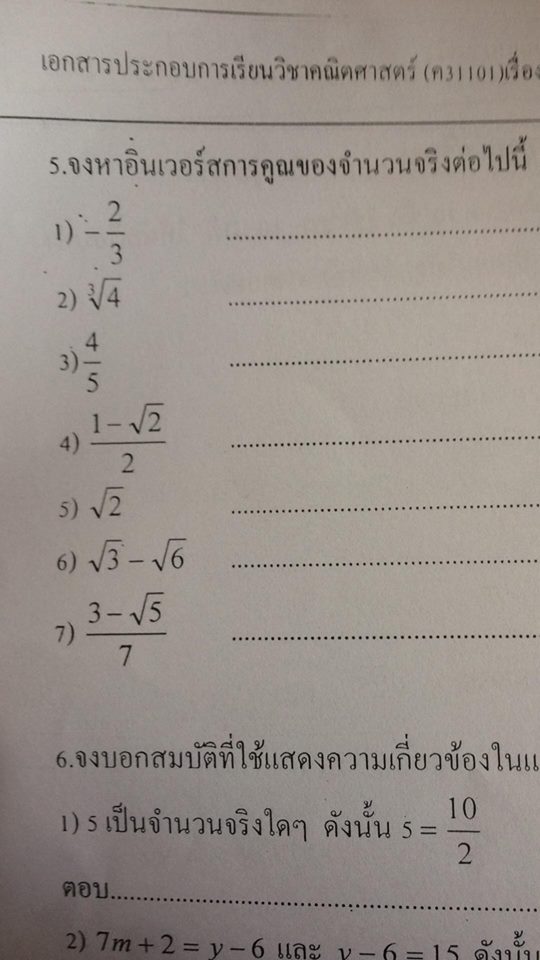 เอกสารประกอบการเรียนวิชาคณิตศาสตร์ (ค31101)เรื่อง
5.จงหาอินเวอร์สการคูณของจำนวนจริงต่อไปนี้
1) −2/3 ........................
2) ∛4 ........................
3) 4/5 ........................
4) (1−√2)/2 ........................
5) √2 ........................
6) √3 − √6 ........................
7) (3−√5)/7 ........................
6.จงบอกสมบัติที่ใช้แสดงความเกี่ยวข้องใน
1) 5 เป็นจำนวนจริงใดๆ ดังนั้น 5 = 10/2
ตอบ........................
2) 7m + 2 = y − 6 และ y − 6 = 15 ดังนั้น